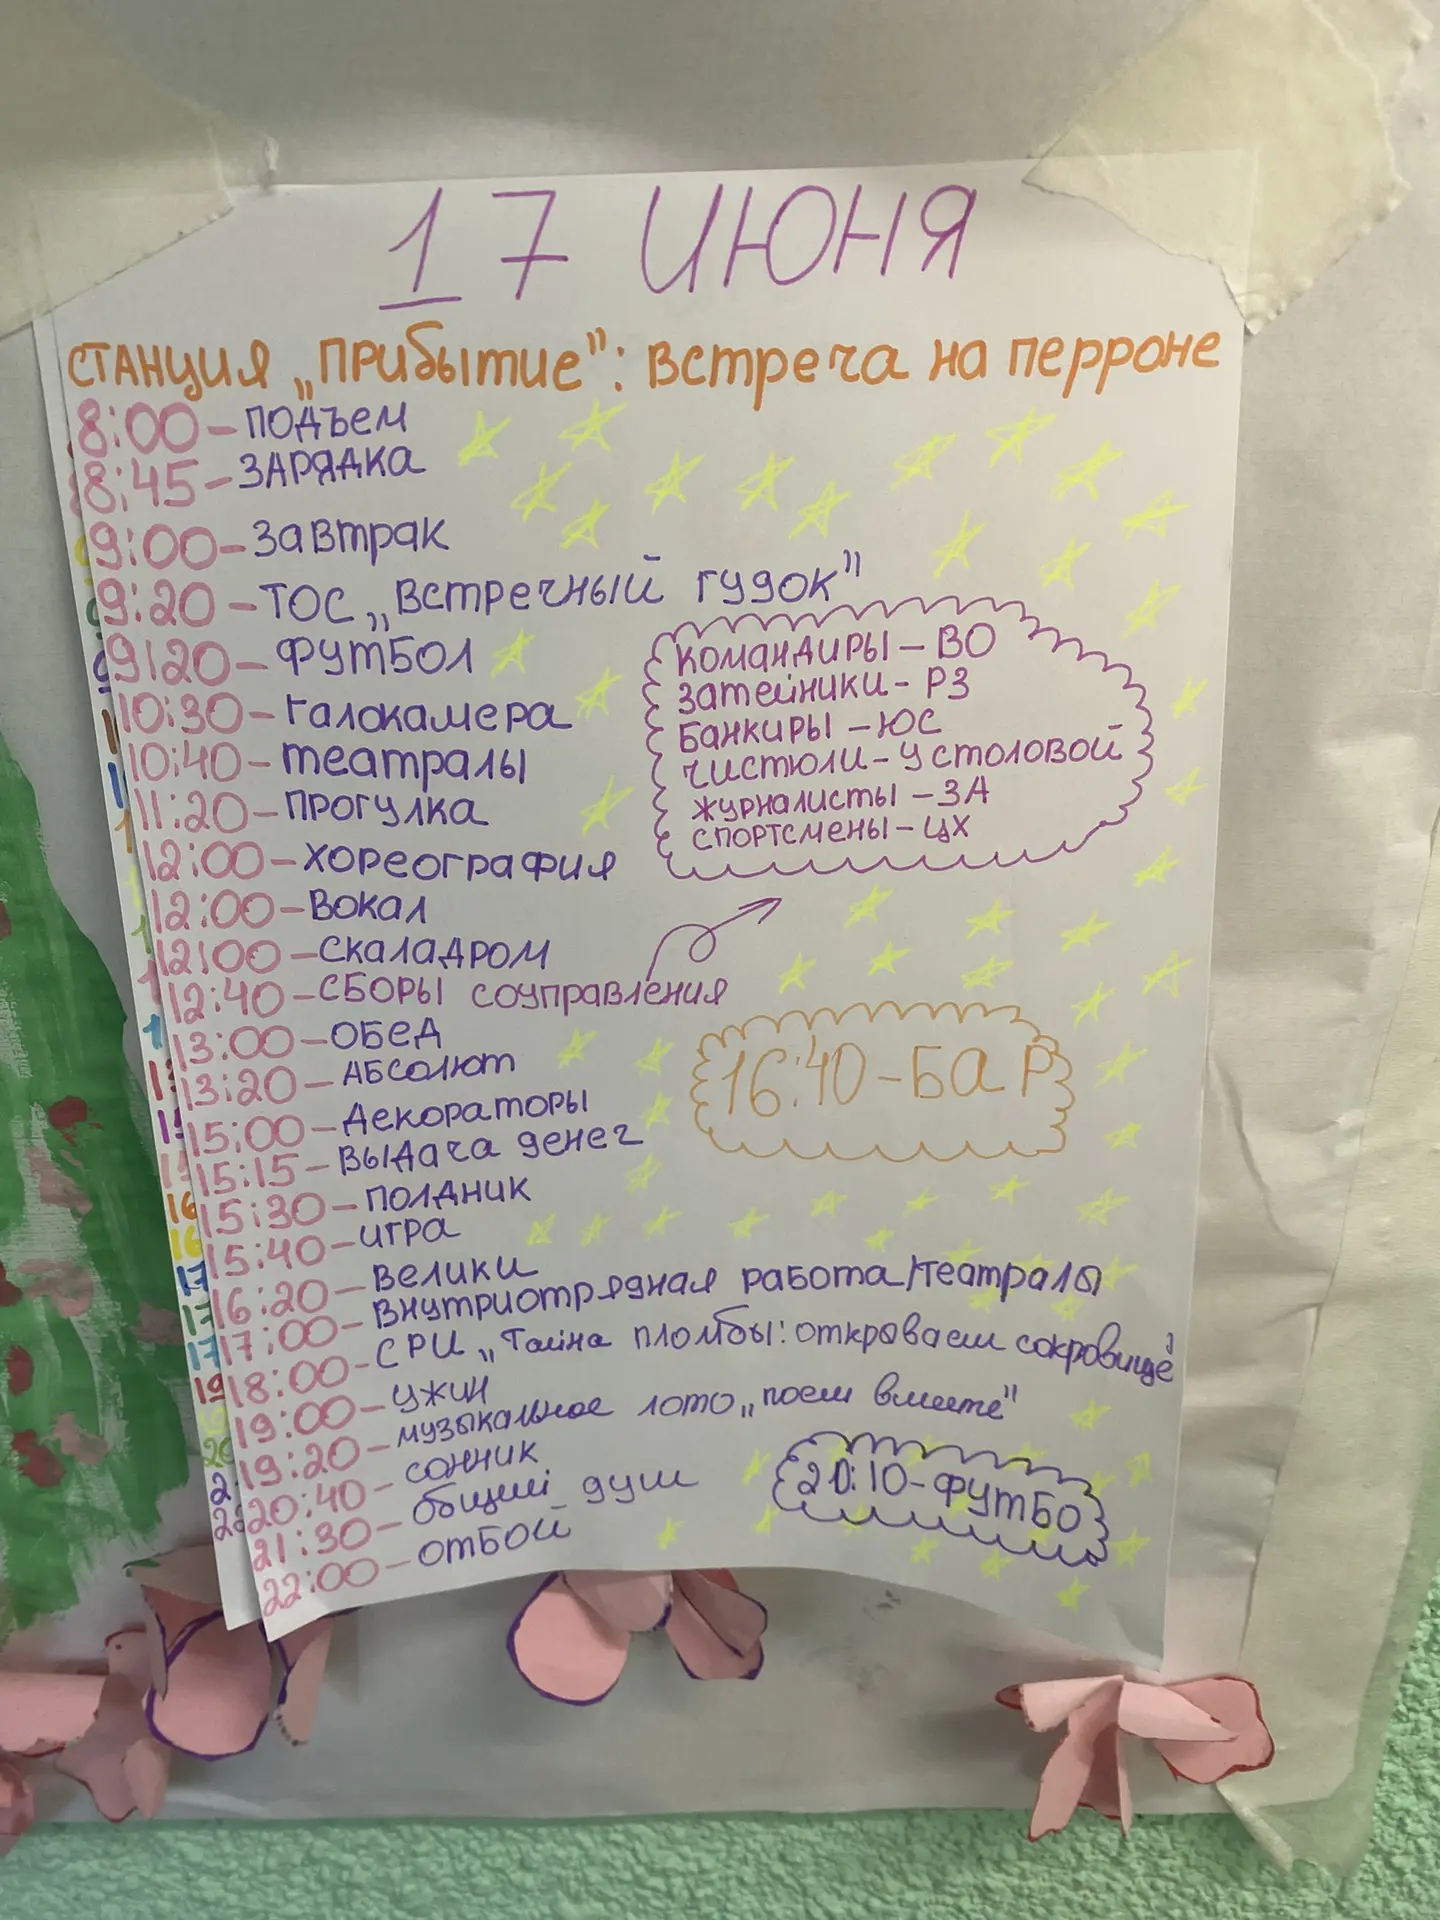 17 ИЮНЯ
СТАНЦИЯ „ПРИБЫТИЕ": Встреча на перроне
8:00 – ПОДЪЕМ
8:45 – ЗАРЯДКА
9:00 – завтрак
9:20 – ТОС „Встречный гудок"
9:20 – ФУТБОЛ
10:30 – галокамера
10:40 – театралы
11:20 – ПРОГУЛКА
12:00 – ХОРЕОГРАФИЯ
12:00 – ВОКАЛ
12:00 – СКАЛАДРОМ
12:40 – СБОРЫ соуправления
КОМАНДИРЫ – ВО
затейники – РЗ
БАНКИРЫ – ЮС
ЧИСТЮЛИ – У СТОЛОВОЙ
ЖУРНАЛИСТЫ – ЗА
СПОРТСМЕНЫ – ЦХ
13:00 – ОБЕД
13:20 – АБСОЛЮТ
15:00 – ДЕКОРАТОРЫ
15:15 – ВЫДАЧА денег
15:30 – ПОЛДНИК
15:40 – ИГРА
16:20 – ВЕЛИКИ
16:40 – БАР
17:00 – внутриотрядная работа/театралы
18:00 – СРИ „Тайна пломбы: открываем
19:00 – УЖИН
19:20 – музыкальное лото „поем вместе"
20:40 – сонник
21:30 – общий душ
22:00 – ОТБОЙ
20:10 – ФУТБО